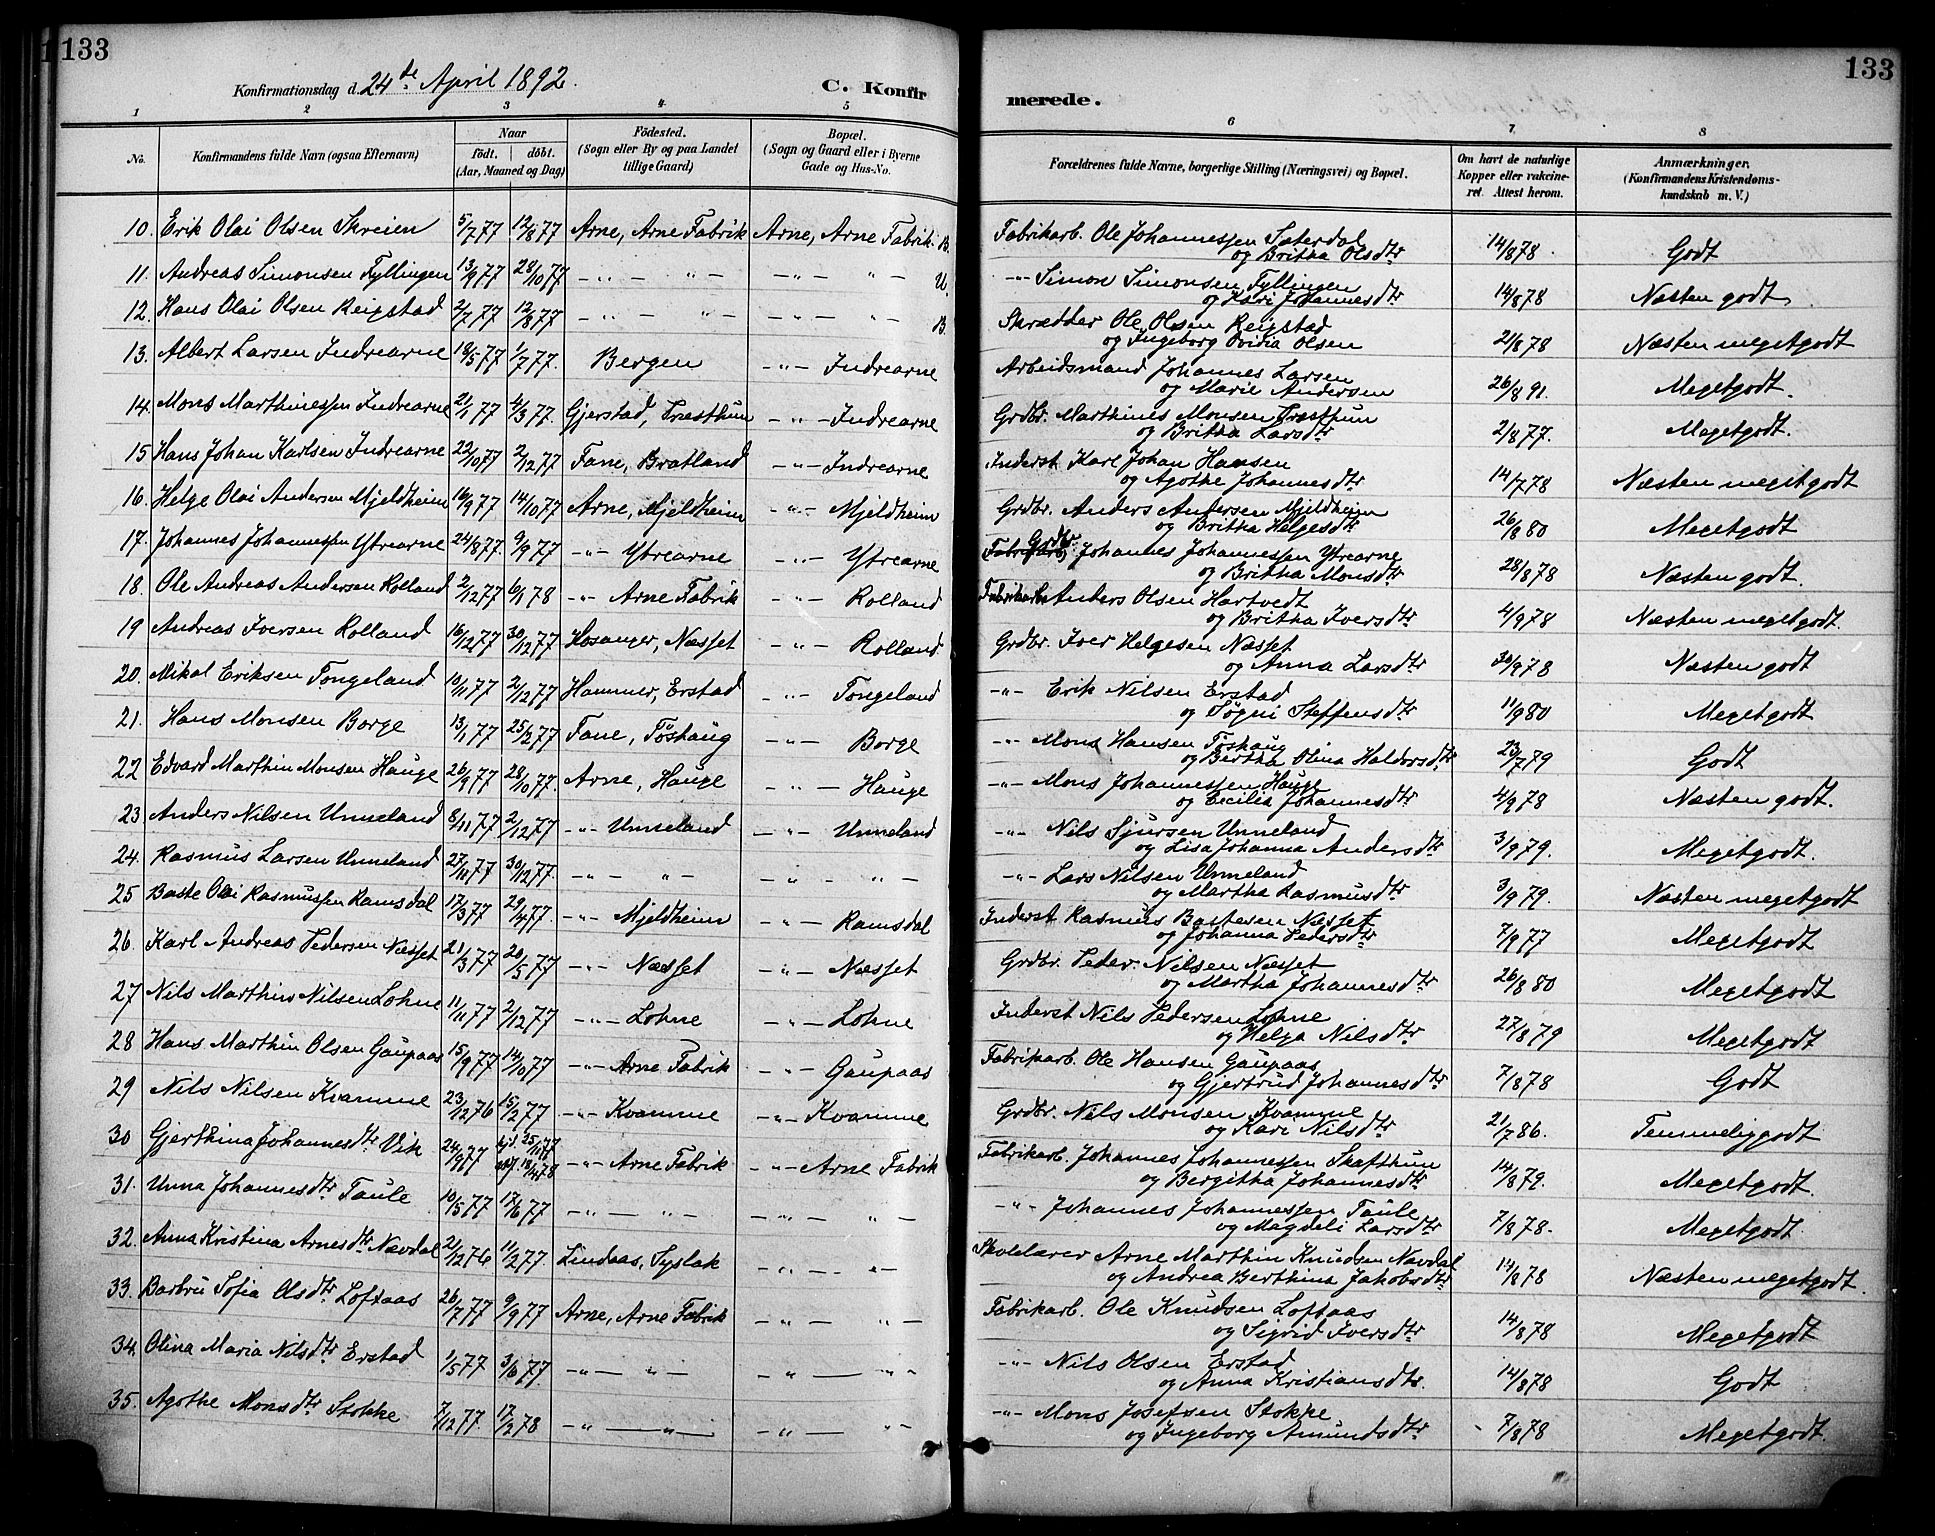 133
133
Konfirmationsdag d. 24de April 1892.
C. Konfirmerede.
1 2 3 4 5 6 7 8
No.
Konfirmandens fulde Navn (ogsaa Efternavn)
Naar
födt. | döbt.
(Aar, Maaned og Dag)
Födested.
(Sogn eller By og paa Landet
tillige Gaard)
Bopæl.
(Sogn og Gaard eller i Byerne
Gade og Hus-No.
Forældrenes fulde Navne, borgerlige Stilling (Næringsvei) og Bopæl.
Om havt de naturlige
Kopper eller vakcine-
ret. Attest herom.
Anmærkninger.
(Konfirmandens Kristendoms-
kundskab m. V.)
10. Erik Olai Olsen Skreien 5/7 77 12/8 77 Arne, Arne Fabrik Arne, Arne Fabrik. B. Fabrikarb. Ole Johannessen Sæterdal 14/8 78. Godt
og Britha Olsdtr
11. Andreas Simonsen Fyllingen 13/9 77 28/10 77 -"- "- -"- "- U. -"- Simon Simonsen Fyllingen 14/8 78 Næsten godt
og Kari Johannesdtr
12. Hans Olai Olsen Reigstad 2/7 77 12/8 77 -"- "- -"- "- B. Skrædder Ole Olsen Reigstad 21/8 78 Næsten megetgodt
og Ingeborg Ovidia Olsen
13. Albert Larsen Indrearne 18/5 77 1/7 77. Bergen -"- Indrearne Arbeidsmand Johannes Larsen 26/8 91. Megetgodt.
og Marie Andersen
14. Mons Marthinessen Indrearne 21/1 77 4/3 77. Gjerstad, Træsthun -"- Indrearne Grdbr. Marthines Monsen Træsthun 2/8 77. Megetgodt.
og Britha Larsdtr
15 Hans Johan Karlsen Indrearne 22/10 77 2/12 77 Fane, Bratland -"- Indrearne Inderst Karl Johan Hansen 14/7 78 Næsten megetgodt
og Agothe Johannesdtr
16. Helge Olai Andersen Mjeldheim 16/9 77 14/10 77 Arne, Mjeldheim -"- Mjeldheim Grdbr. Anders Andersen Mjeldheim 26/8 80 Megetgodt
og Britha Helgesdtr
17. Johannes Johannessen Ytrearne 24/8 77. 9/9 77 -"- Ytrearne -"- Ytrearne Grdbr. Johannes Johannessen Ytrearne 28/8 78 Næsten godt.
og Britha Monsdtr
18. Ole Andreas Andersen Rolland 2/12 77 6/1 78 -"- Arne Fabrik -"- Rolland Fabrikarb Anders Olsen Hartvedt 4/9 78 Næsten megetgodt.
og Britha Iversdtr
19 Andreas Iversen Rolland 16/12 77 30/12 77 Hosanger, Næsset -"- Rolland Grdbr. Iver Helgesen Næsset 30/9 78 Næsten godt
og Anna Larsdtr
20. Mikal Eriksen Tongeland 10/11 77 2/12 77 Hammer, Erstad -"- Tongeland -"- Erik Nilsen Erstad 11/9 80 Megetgodt
og Søgni Steffensdtr
21. Hans Monsen Borge 13/1 77 25/2 77 Fane, Töshaug -"- Borge -"- Mons Hansen Töshaug 23/7 79 Godt
og Bertha Olina Haldorsdtr
22 Edvard Marthin Monsen Hauge 26/9 77 28/10 77. Arne, Hauge -"- Hauge -"- Mons Johannessen Hauge 4/9 78 Næsten godt.
og Cecilia Johannesdtr
23 Anders Nilsen Unneland 8/11 77 2/12 77 -"- Unneland -"- Unneland -"- Nils Sjursen Unneland 3/9 79. Megetgodt.
og Lisa Johanna Andersdtr
24. Rasmus Larsen Unneland 27/11 77 30/12 77. -"- "- -"- "- -"- Lars Nilsen Unneland 3/9 79. Næsten megetgodt
og Martha Rasmusdtr
25 Baste Olai Rasmussen Ramsdal 17/3 77 29/4 77. -"- Mjeldheim -"- Ramsdal Inderst Rasmus Bastesen Næsset 7/9 77 Megetgodt
og Johanna Pedersdtr
26. Karl Andreas Pedersen Næsset 21/3 77 20/5 77 -"- Næsset -"- Næsset Grdbr. Peder Nilsen Næsset 26/8 80 Megetgodt
og Martha Johannesdtr
27 Nils Marthin Nilsen Lohne 11/11 77 2/12 77 -"- Lohne -"- Lohne Inderst Nils Pedersen Lohne 27/8 79 Megetgodt
og Helga Nilsdtr
28 Hans Marthin Olsen Gaupaas 15/9 77 14/10 77 -"- Arne Fabrik -"- Gaupaas Fabrikarb. Ole Hansen Gaupaas 7/8 78 Godt
og Gjertrud Johannesdtr
29 Nils Nilsen Kvamme 23/12 76 15/2 77 -"- Kvamme -"- Kvamme Grdbr. Nils Monsen Kvamme 21/7 86. Temmeliggodt
og Kari Nilsdtr
30 Gjerthina Johannesdtr Vik 24/9 77 hjd. 25/10 77 -"- Arne Fabrik -"- Arne Fabrik Fabrikarb. Johannes Johannessen Skafthun 14/8 79. Megetgodt.
og Bergitha Johannesdtr
31. Unna Johannesdtr Taule 10/5 77 17/6 77 -"- "- -"- "- -"- Johannes Johannessen Taule 7/8 78. Megetgodt
og Magdeli Larsdtr
32. Anna Kristina Arnesdtr Nævdal 21/12 76 11/2 77. Lindaas, Syslak -"- "- Skolelærer Arne Marthin Knudsen Nævdal 14/8 78 Næsten megetgodt.
og Andrea Berthina Jakobsdtr
33. Barbru Sofia Olsdtr Loftaas 26/7 77 9/9 77 Arne, Arne Fabrik -"- "- Fabrikarb. Ole Knudsen Loftaas 14/8 78 Megetgodt
og Sigrid Iversdtr
34. Olina Maria Nilsdtr Erstad 1/5 77 3/6 77. -"- "- -"- "- -"- Nils Olsen Erstad 14/8 78 Godt
og Anna Kristiansdtr.
35. Agothe Monsdtr Stokke 7/12 77. 17/2 78 -"- "- -"- "- -"- Mons Josefsen Stokke 7/8 78 Megetgodt.
og Ingeborg Amundsdtr